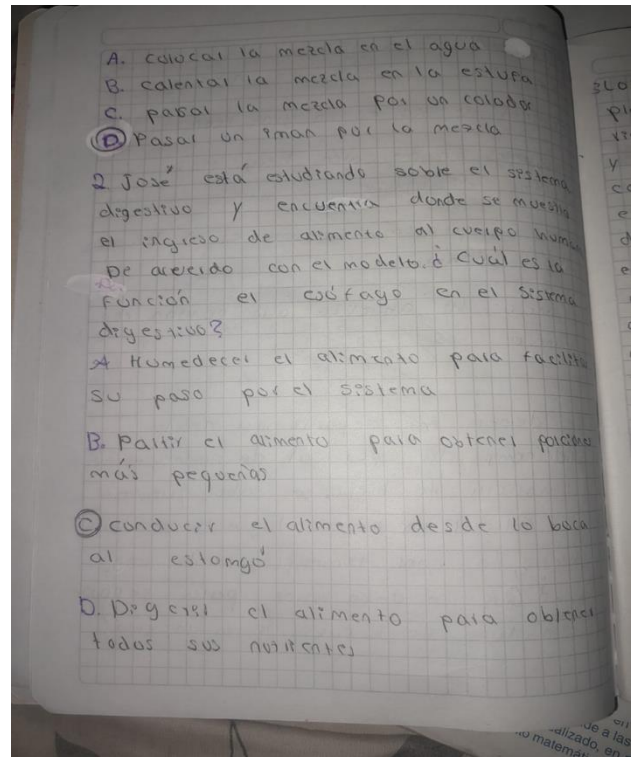 A. colocal la mezcla en el agua
B. calental la mezcla en la estufa
C. pasar la mezcla por un colador
D Pasar un iman por la mezcla
2 José está estudiando soble el sistema
digestivo y encuentra donde se muestra
el ingreso de alimento al cuerpo human
De acuerdo con el modelo. ¿ cuál es la
función el esófago en el sistema
digestivo?
A Humedecer el alimento para facilita
su paso por el sistema
B. Paltir el alimento para obtener porciones
más pequeñas
C conducir el alimento desde lo boca
al estomgó
D. Digerir el alimento para obtener
todos sus nutrientes
ue a las
alizado, en
matemáti